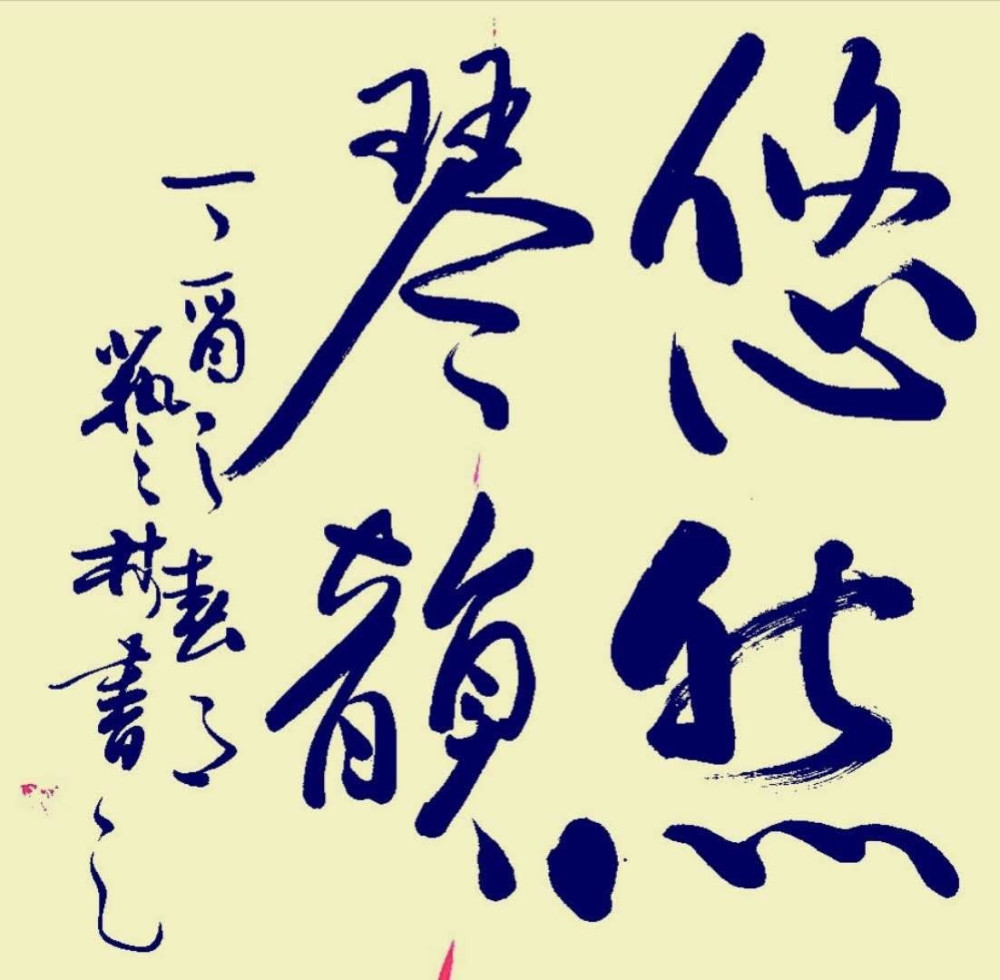 悠然
琴韻
丁酉之春
書之